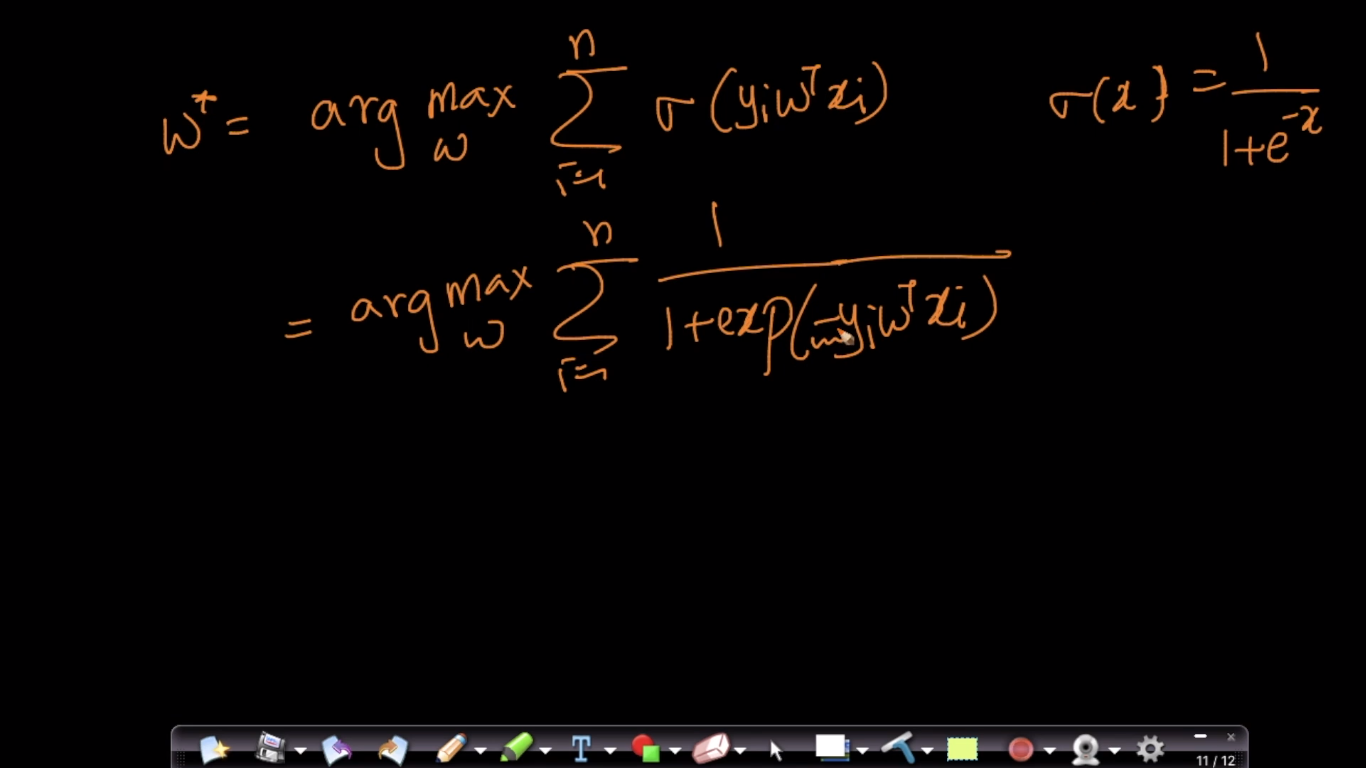 w* = arg max_w Σ_{i=1}^{n} σ(y_i w^T x_i)    σ(x) = 1/(1+e^{-x})
= arg max_w Σ_{i=1}^{n} 1/(1+exp(-y_i w^T x_i))
T
11 / 12